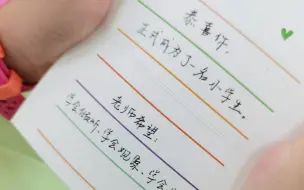 恭喜你,
正式成为了一名小学生。
老师希望:
学会倾听、学会观察、学会